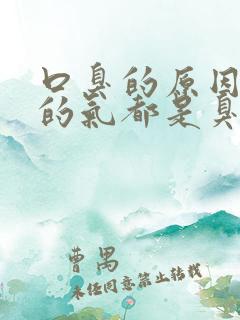 口臭的原因
的气都是臭
曹禺
未经同意禁止转载